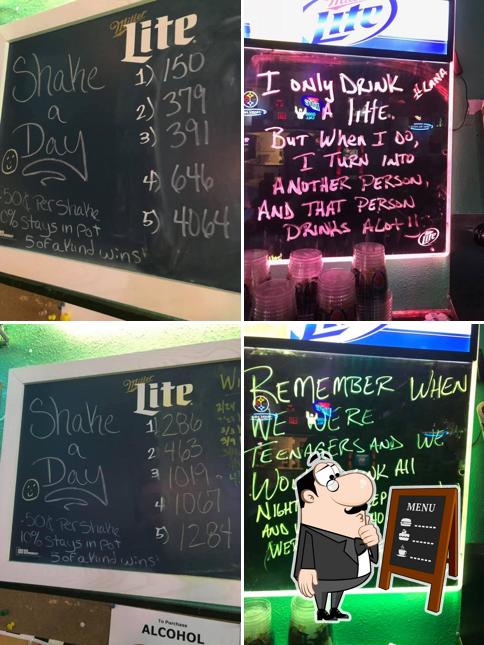 Miller
Lite
Shake
a
Day
1) 150
2) 379
3) 391
4) 646
5) 4064
.50¢ Per Shake
10% stays in pot
5 of a kind wins!
Lite
I only DRINK
A little.
But When I do,
I TURN INTO
ANOTHER PERSON,
AND THAT PERSON
DRINKS A Lot!!
ILANA
Lite
Miller
Lite
Shake
a
Day
1) 286
2) 463
3) 1019
4) 1067
5) 1284
.50¢ Per Shake
10% stays in pot
5 of a kind wins!
To Purchase
ALCOHOL
REMEMBER WHEN
WE WERE
TEENAGERS AND WE
All
NIGHT
AND
MENU